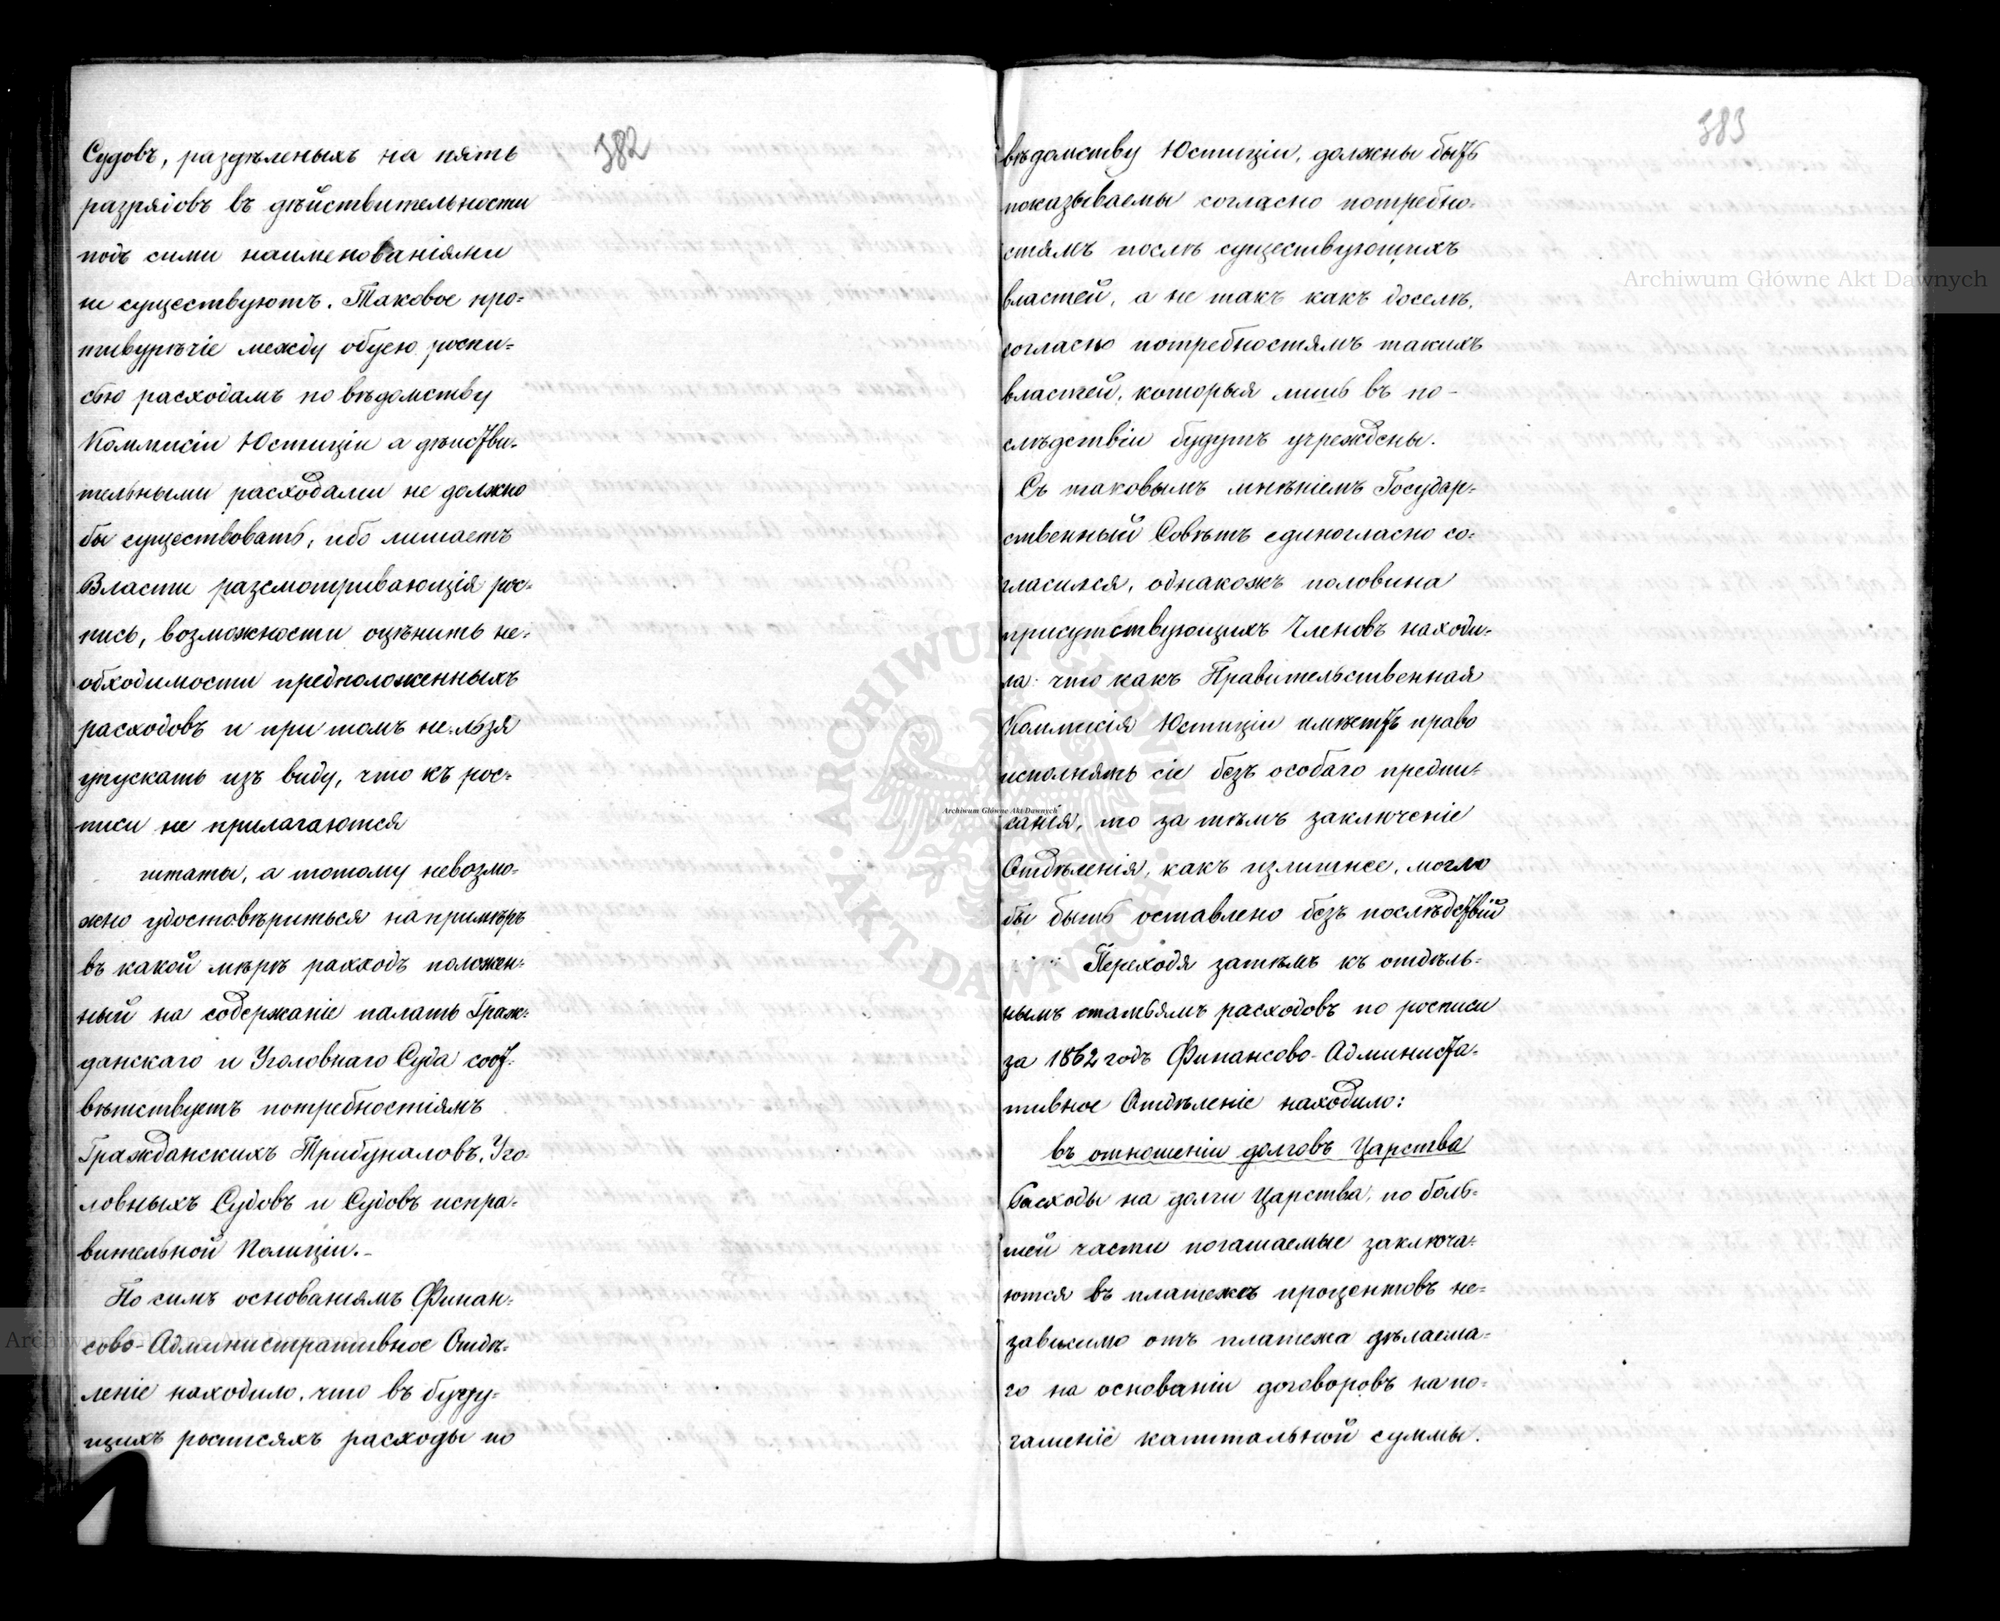 382
Судовъ, раздѣленыхъ на пять
разрядовъ въ дѣйствительности
подъ сими наименованіями
не существуютъ. Таковое про-
тивурѣчіе между общею роспи-
сью расходамъ по вѣдомству
Коммисіи Юстиціи а дѣистви-
тельными расходами не должно
бы существовать, ибо лишаетъ
Власти разсмотривающія рос-
пись, возможности оцѣнить не-
обходимости предположенныхъ
расходовъ и при томъ нельзя
упускать изъ виду, что къ рос-
писи не прилагаются
штаты, а потому невозмо-
жно удостовѣриться напримѣръ
въ какой мѣрѣ расходъ положен-
ный на содержаніе палатъ Граж-
данскаго и Уголовнаго Суда соот-
вѣтствуетъ потребностіямъ
Гражданскихъ Трибуналовъ, Уго-
ловныхъ Судовъ и Судовъ испра-
вительной Полиціи.-
По симъ основаніямъ Финан-
сово-Административное Отдѣ-
леніе находило, что въ буду-
щихъ росписяхъ расходы по
383
вѣдомству Юстиціи, должны быть
показываемы согласно потребно-
стямъ послѣ существующихъ
властей, а не такъ какъ доселѣ,
согласно потребностямъ такихъ
властей, которыя лишь въ по-
слѣдствіи будутъ учреждены.
Съ таковымъ мнѣніемъ Государ-
ственный Совѣтъ единогласно со-
гласился, однакожъ половина
присутствующихъ Членовъ находи-
ла: что какъ Правительственная
Коммисія Юстиціи имѣетъ право
исполнять сіе безъ особаго предпи-
санія, то за тѣмъ заключеніе
Отдѣленія, какъ излишнее, могло
бы быть оставлено безъ послѣдствій
Переходя затѣмъ къ отдѣль-
нымъ статьямъ расходовъ по росписи
за 1862 годъ Финансово-Администра-
тивное Отдѣленіе находило:
въ отношеніи долговъ Царства
Расходы на долги Царства, по боль-
шей части погашаемые заключа-
ются въ платежѣ процентовъ не-
зависимо отъ платежа дѣлаема-
го на основаніи договоровъ на по-
гашеніе капитальной суммы.
Archiwum Główne Akt Dawnych
Archiwum Główne Akt Dawnych
ARCHIWUM GŁÓWNE AKT DAWNYCH
Archiwum Główne Akt Dawnych